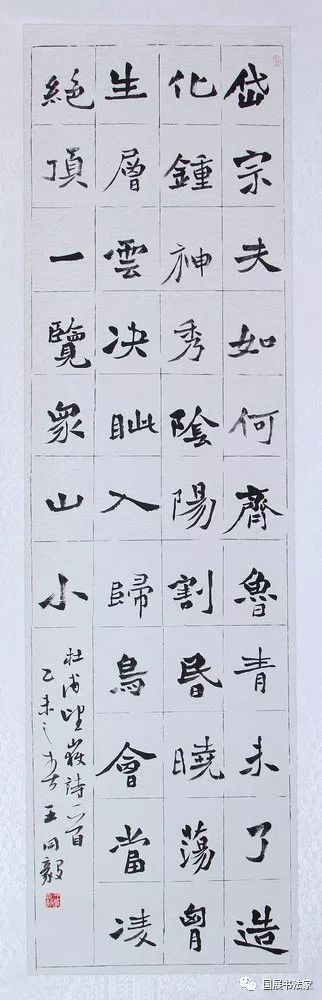 岱宗夫如何齊魯青未了造
化鍾神秀陰陽割昏曉蕩胷
生層雲决眦入歸鳥會當凌
絶頂一覽衆山小
杜甫望嶽詩一首
乙未之王同毅
国展书法家